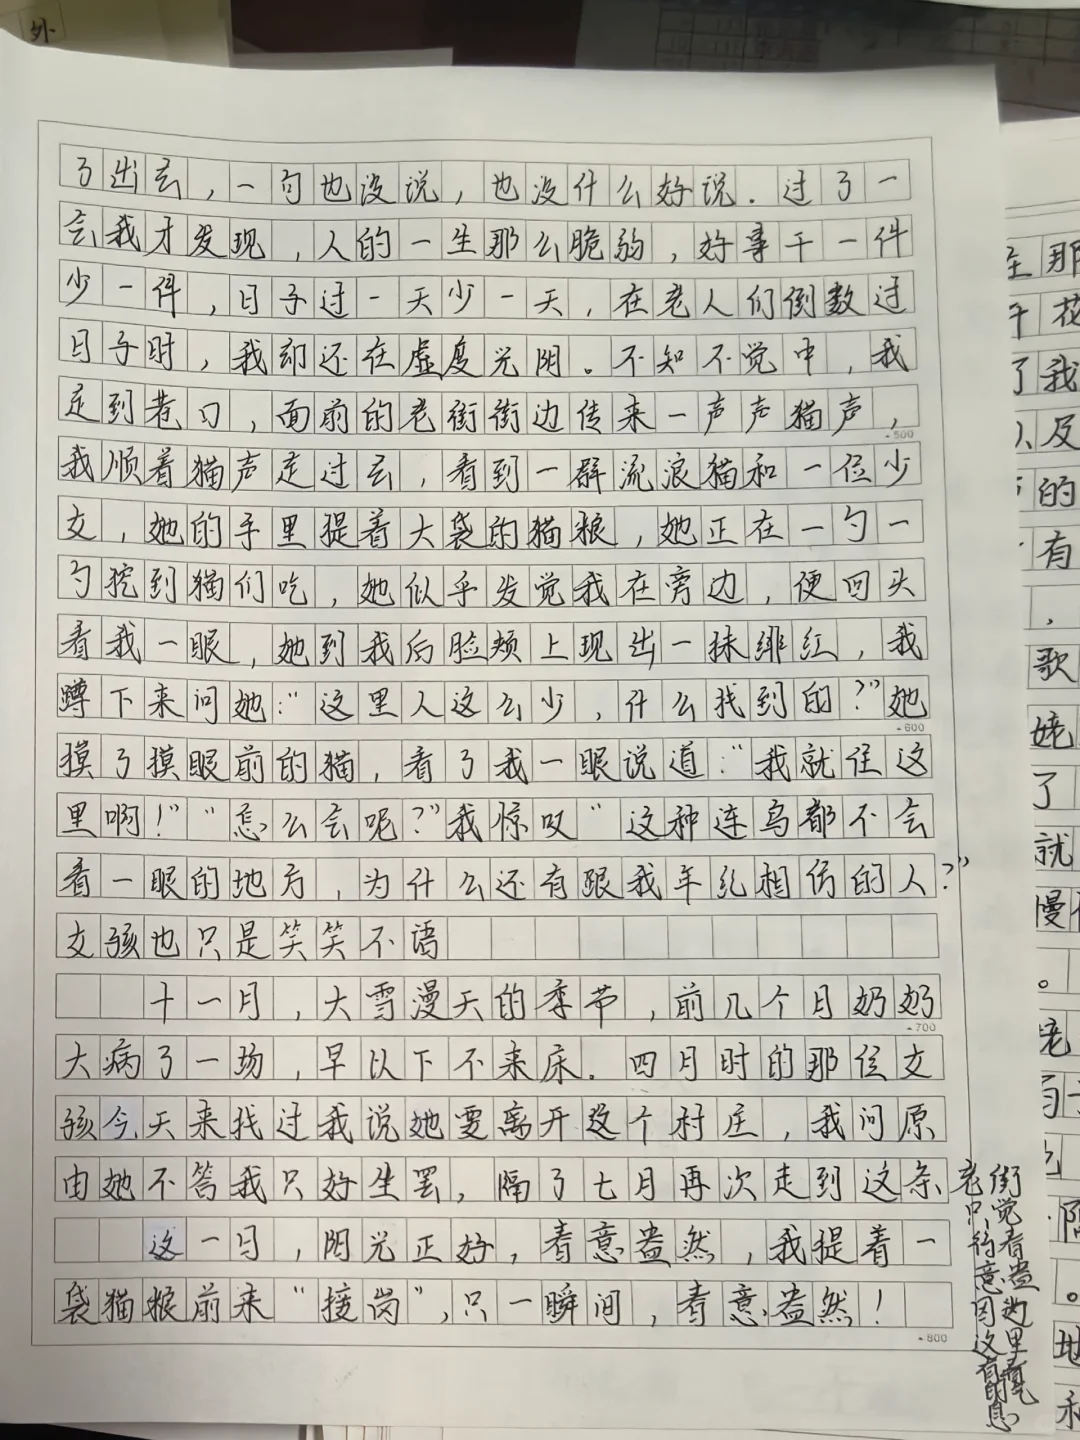 外
了出去，一句也没说，也没什么好说．过了一
会我才发现，人的一生那么脆弱，好事干一件
少一件，日子过一天少一天，在老人们倒数过
日子时，我却还在虚度光阴。不知不觉中，我
走到巷口，面前的老街街边传来一声声猫声，
-500
我顺着猫声走过去，看到一群流浪猫和一位少
女，她的手里提着大袋的猫粮，她正在一勺一
勺挖到猫们吃，她似乎发觉我在旁边，便回头
看我一眼，她到我后脸颊上现出一抹绯红，我
蹲下来问她："这里人这么少，什么找到的？"她
-600
摸了摸眼前的猫，看了我一眼说道："我就住这
里啊！""怎么会呢？"我惊叹"这种连鸟都不会
看一眼的地方，为什么还有跟我年纪相仿的人？"
女孩也只是笑笑不语
十一月，大雪漫天的季节，前几个月奶奶
-700
大病了一场，早以下不来床．四月时的那位女
孩今天来找过我说她要离开这个村庄，我问原
由她不答我只好生罢，隔了七月再次走到这条
老街
只觉
春
意盎
因为
这里
有
息
这一日，阳光正好，春意盎然，我提着一
袋猫粮前来"接岗"，只一瞬间，春意盎然！
-800
至那
花
了我
反
的
有
，
歌
姥
了
就
慢
。
姥
。
地
和